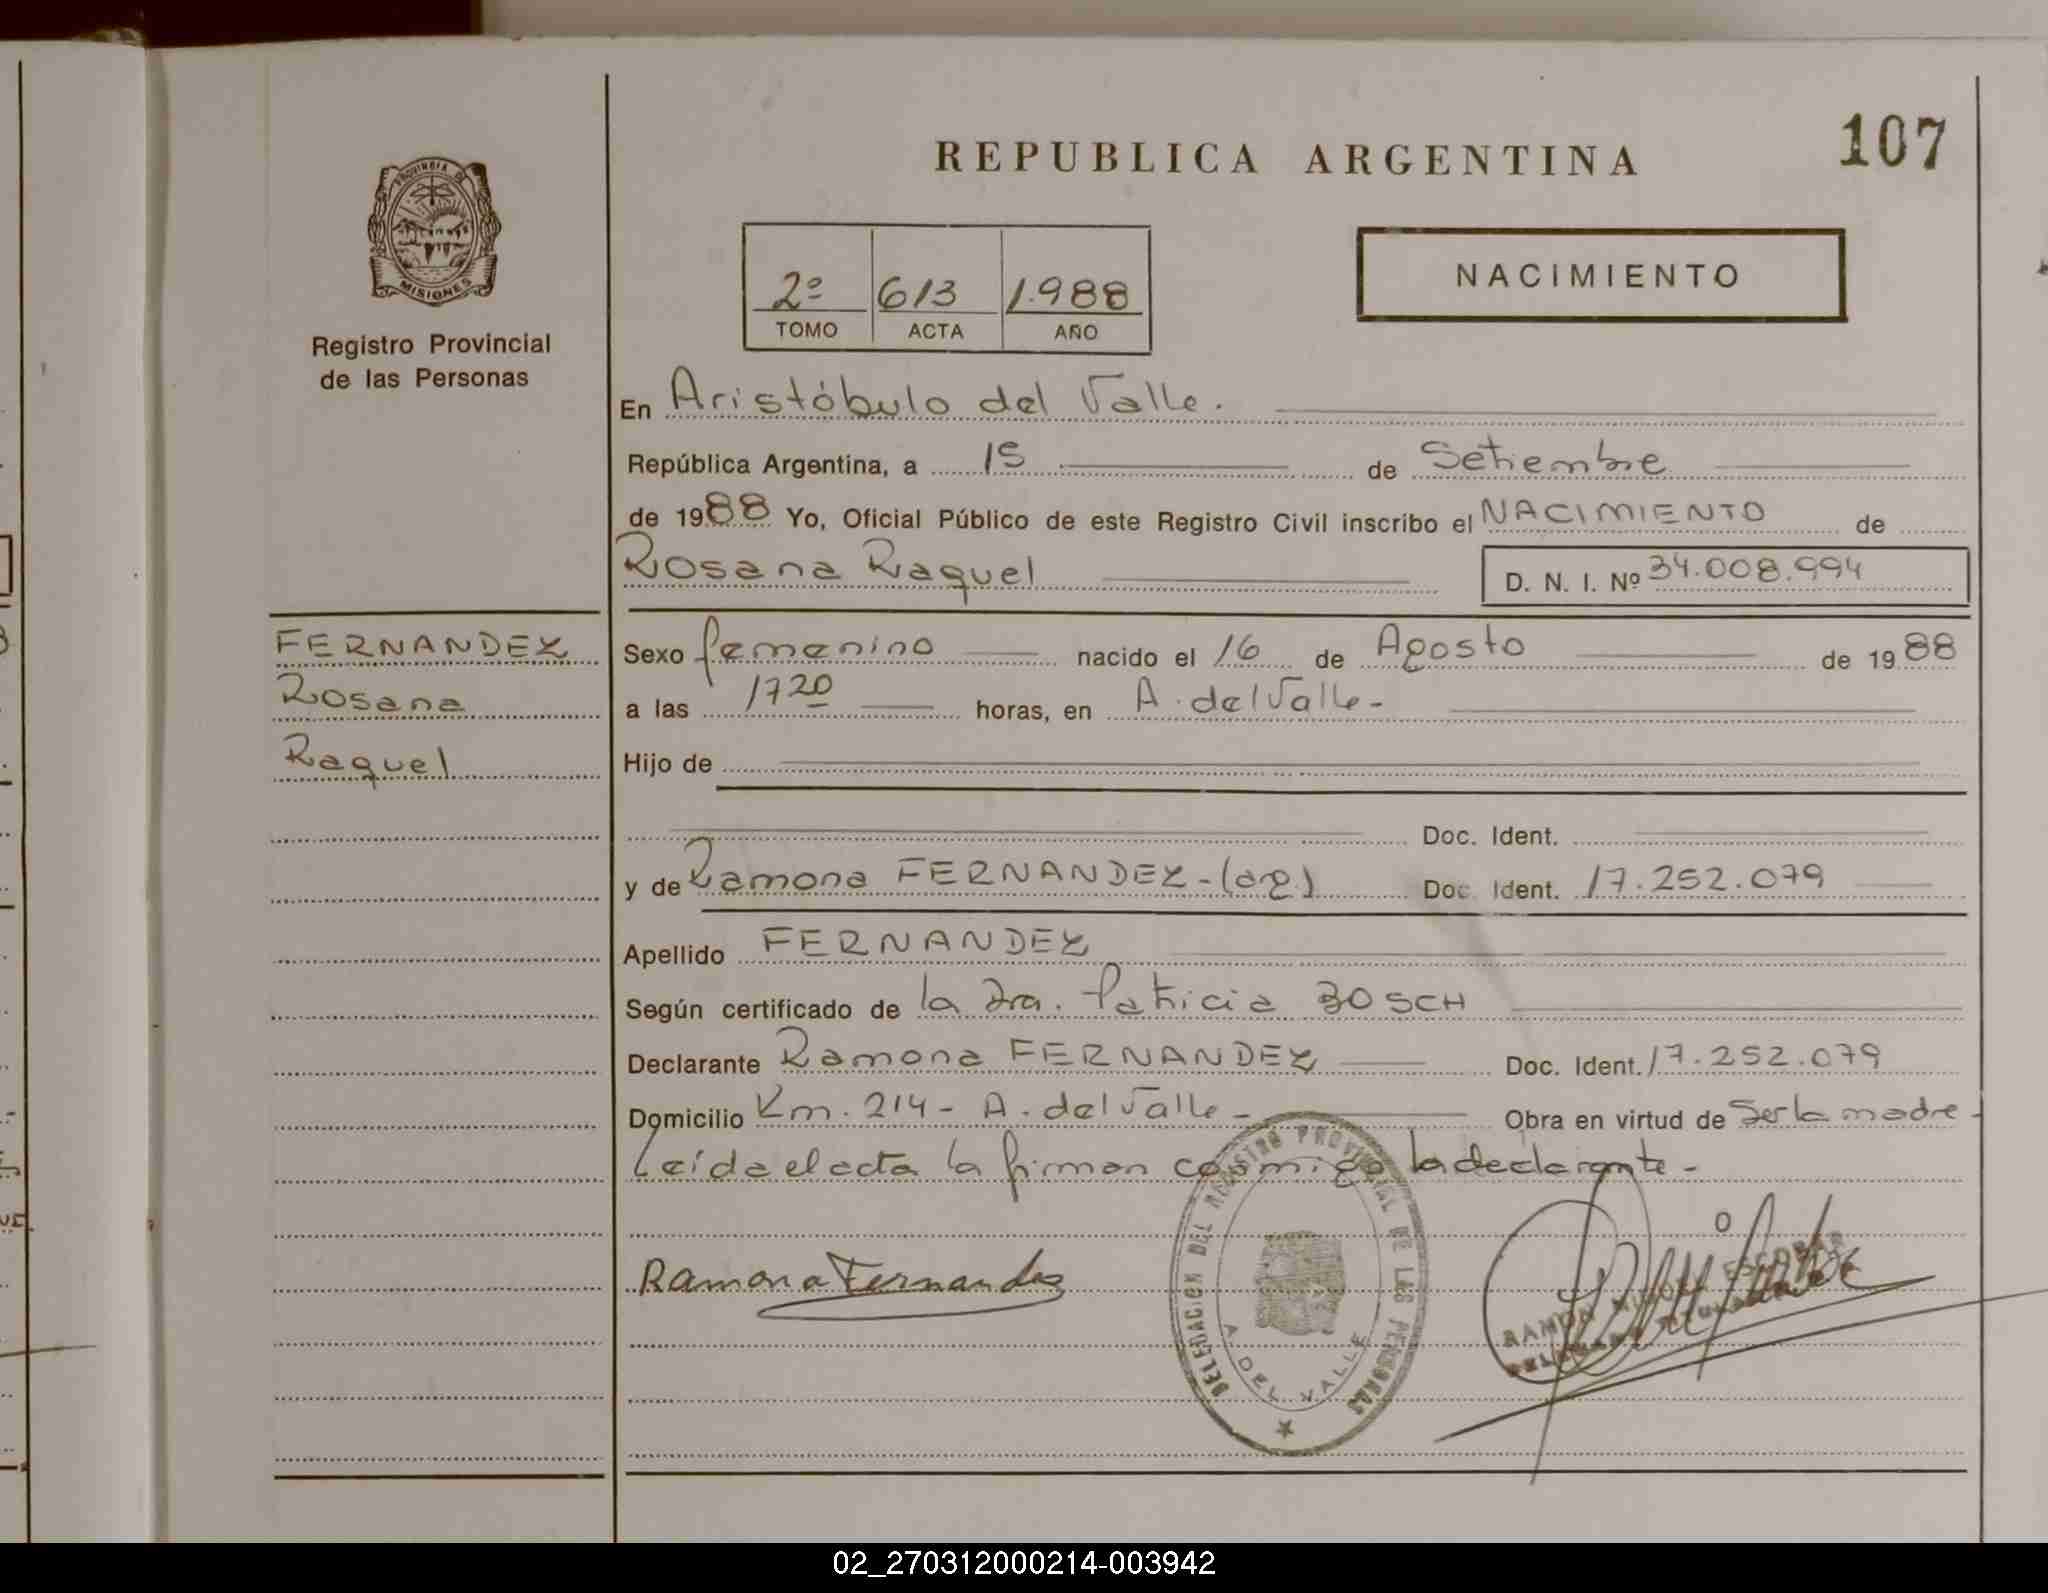 REPUBLICA ARGENTINA
107
PROVINCIA DE
MISIONES
Registro Provincial
de las Personas
2º 613 1.988
TOMO ACTA AÑO
NACIMIENTO
En Aristóbulo del Valle.
República Argentina, a 15 de Setiembre
de 1988 Yo, Oficial Público de este Registro Civil inscribo el NACIMIENTO de
Rosana Raquel D. N. I. Nº 34.008.994
FERNANDEZ
Rosana
Raquel
Sexo femenino nacido el 16 de Agosto de 1988
a las 1720 horas, en A. del Valle-
Hijo de
Doc. Ident.
y de Ramona FERNANDEZ-(arg.) Doc. Ident. 17.252.079
Apellido FERNANDEZ
Según certificado de la Dra. Patricia BOSCH
Declarante Ramona FERNANDEZ Doc. Ident. 17.252.079
Domicilio Km. 214- A. del Valle- Obra en virtud de Ser la madre-
Leída el acta la firman conmigo la declarante-
Ramona Fernandez
DELEGACION DEL REGISTRO PROVINCIAL DE LAS PERSONAS
A. DEL VALLE
RAMON MIGUEL ESCOBAR
02_270312000214-003942